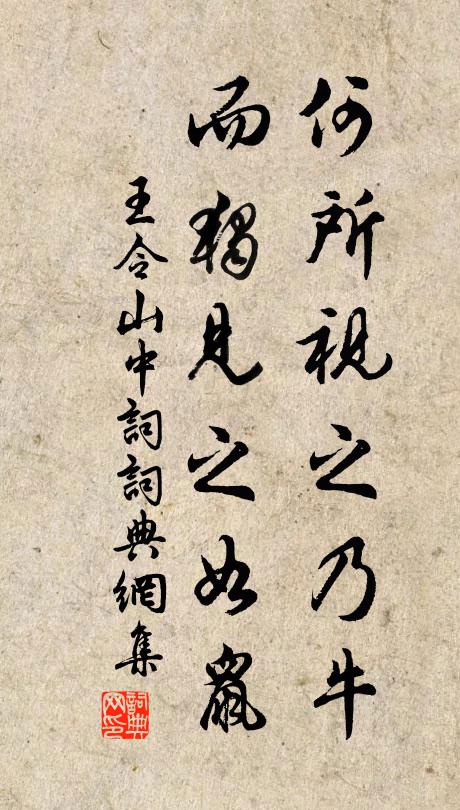 何所視之乃牛
而獨見之如鼠
王令山中詞詞典網集
詞典網印